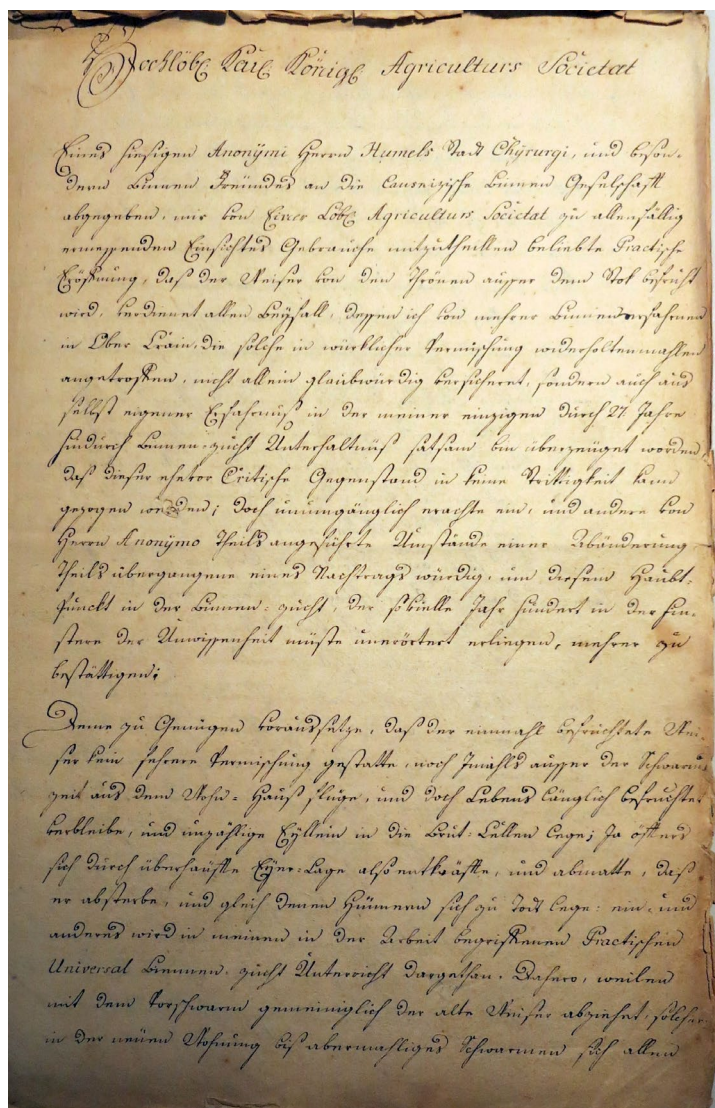 Hochlöbl: Kaiß: Königl: Agriculturs Societat
Eines hiesigen Anonÿmi Herrn Humels Stadt Chÿrurgi, und beson-
dern Binnen Freündes an die Lausnizische Binnen Geselschafft
abgegeben, mir von Einer Löbl: Agriculturs Societat zu allenfällig
ermessenden Einsichtes Gebrauche mitzutheillen beliebte Practische
Eröffnung, daß der Weiser von den Thrönen ausser dem Stok befrucht
wird, verdienet allen Beÿfall, dessen ich von mehrer Binnenerfahrnen
in Ober Crain, die solche in würklicher Vermischung widerholtenmahlen
angetroffen, nicht allein glaubwürdig versicheret, sondern auch aus
selbst eigener Erfahrnuß in der meiner einzigen durch 27 Jahre
hindurch Binnen-zucht Unterhaltnuß sattsam bin überzeüget worden,
daß dieser ehevor Critische Gegenstand in keine Strittigkeit kann
gezogen werden; doch unumgänglich erachte ein, und andere von
Herrn Anonÿmo theils angeführte Umstände einer Abänderung
theils übergangene eines Nachtrags würdig, um diesem Haubt-
punckt in der Binnen-zucht, der so vielle Jahr hundert in der Fin-
stere der Unwissenheit müste unerörtert erliegen, mehrer zu
bestättigen;
Deme zu Genügen voraussetze, daß der einmahl befruchtete Wei-
ser kein fehrere Vermischung gestatte, noch Jmahls ausser der Schwarm
zeit aus dem Wohn-Hauß fluge, und doch Lebens länglich befruchtet
verbleibe, und unzählige Eÿllein in die Brut-Cellen lege; Ja öfters
sich durch überhauffte Eÿer-Lage also entkräffte, und abmatte, daß
er absterbe, und gleich denen Hünnern sich zu Todt lege: ein- und
anderes wird in meinen in der Arbeit begriffenen Practischen
Universal Biennen-zucht Unterricht dargethan. Dahero, weilen
mit dem Vorschwarm gemeiniglich der alte Weiser abziehet, solcher
in der neüen Wohnung bis abermahliges Schwarmen sich allein